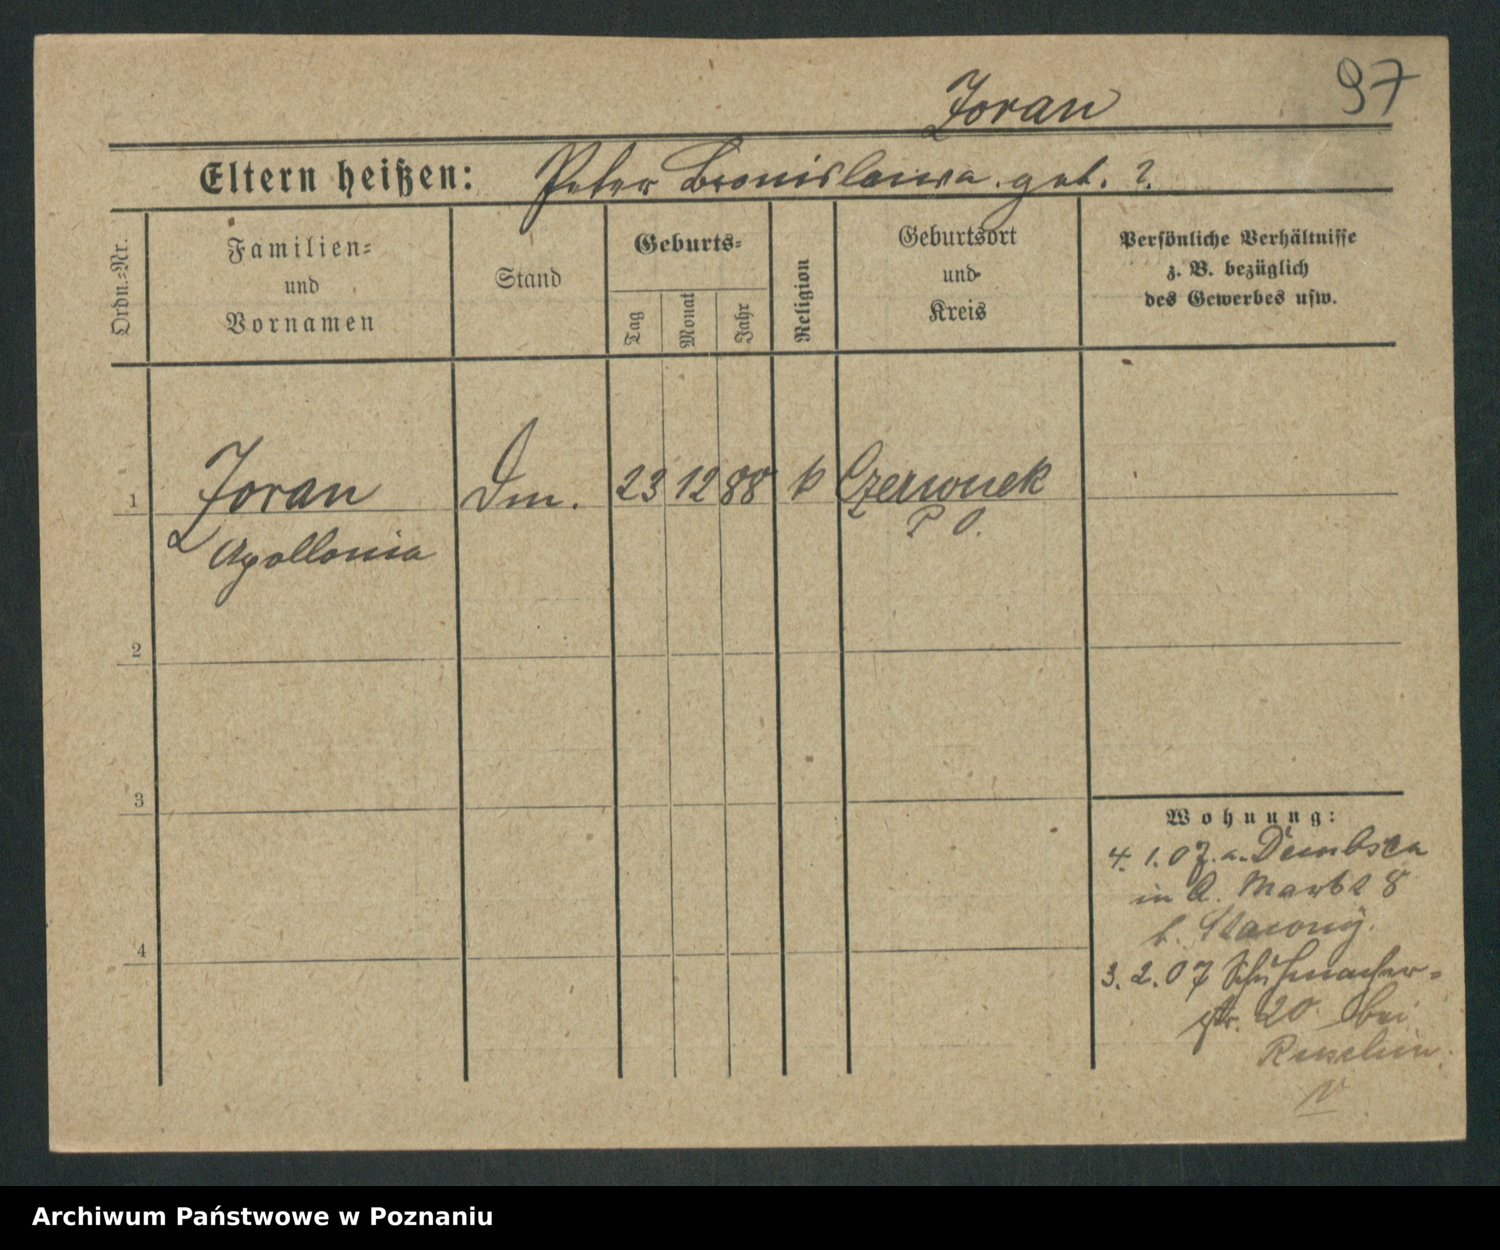 97
Zoran
Eltern heißen: Peter Bronislawa geb. ?
Ordn.-Nr.
Familien-
und
Vornamen
Stand
Geburts-
Tag
Monat
Jahr
Religion
Geburtsort
und
Kreis
Persönliche Verhältnisse
z. B. bezüglich
des Gewerbes usw.
1 Zoran Dm. 23 12 88 k Czerwonek
Apollonia P. O.
2
3
4
Wohnung:
4. 1. 07 z. a. Dembsen
in A. Markt 8
b.
3. 2. 07 Schuhmacher-
str. 20 bei
Archiwum Państwowe w Poznaniu